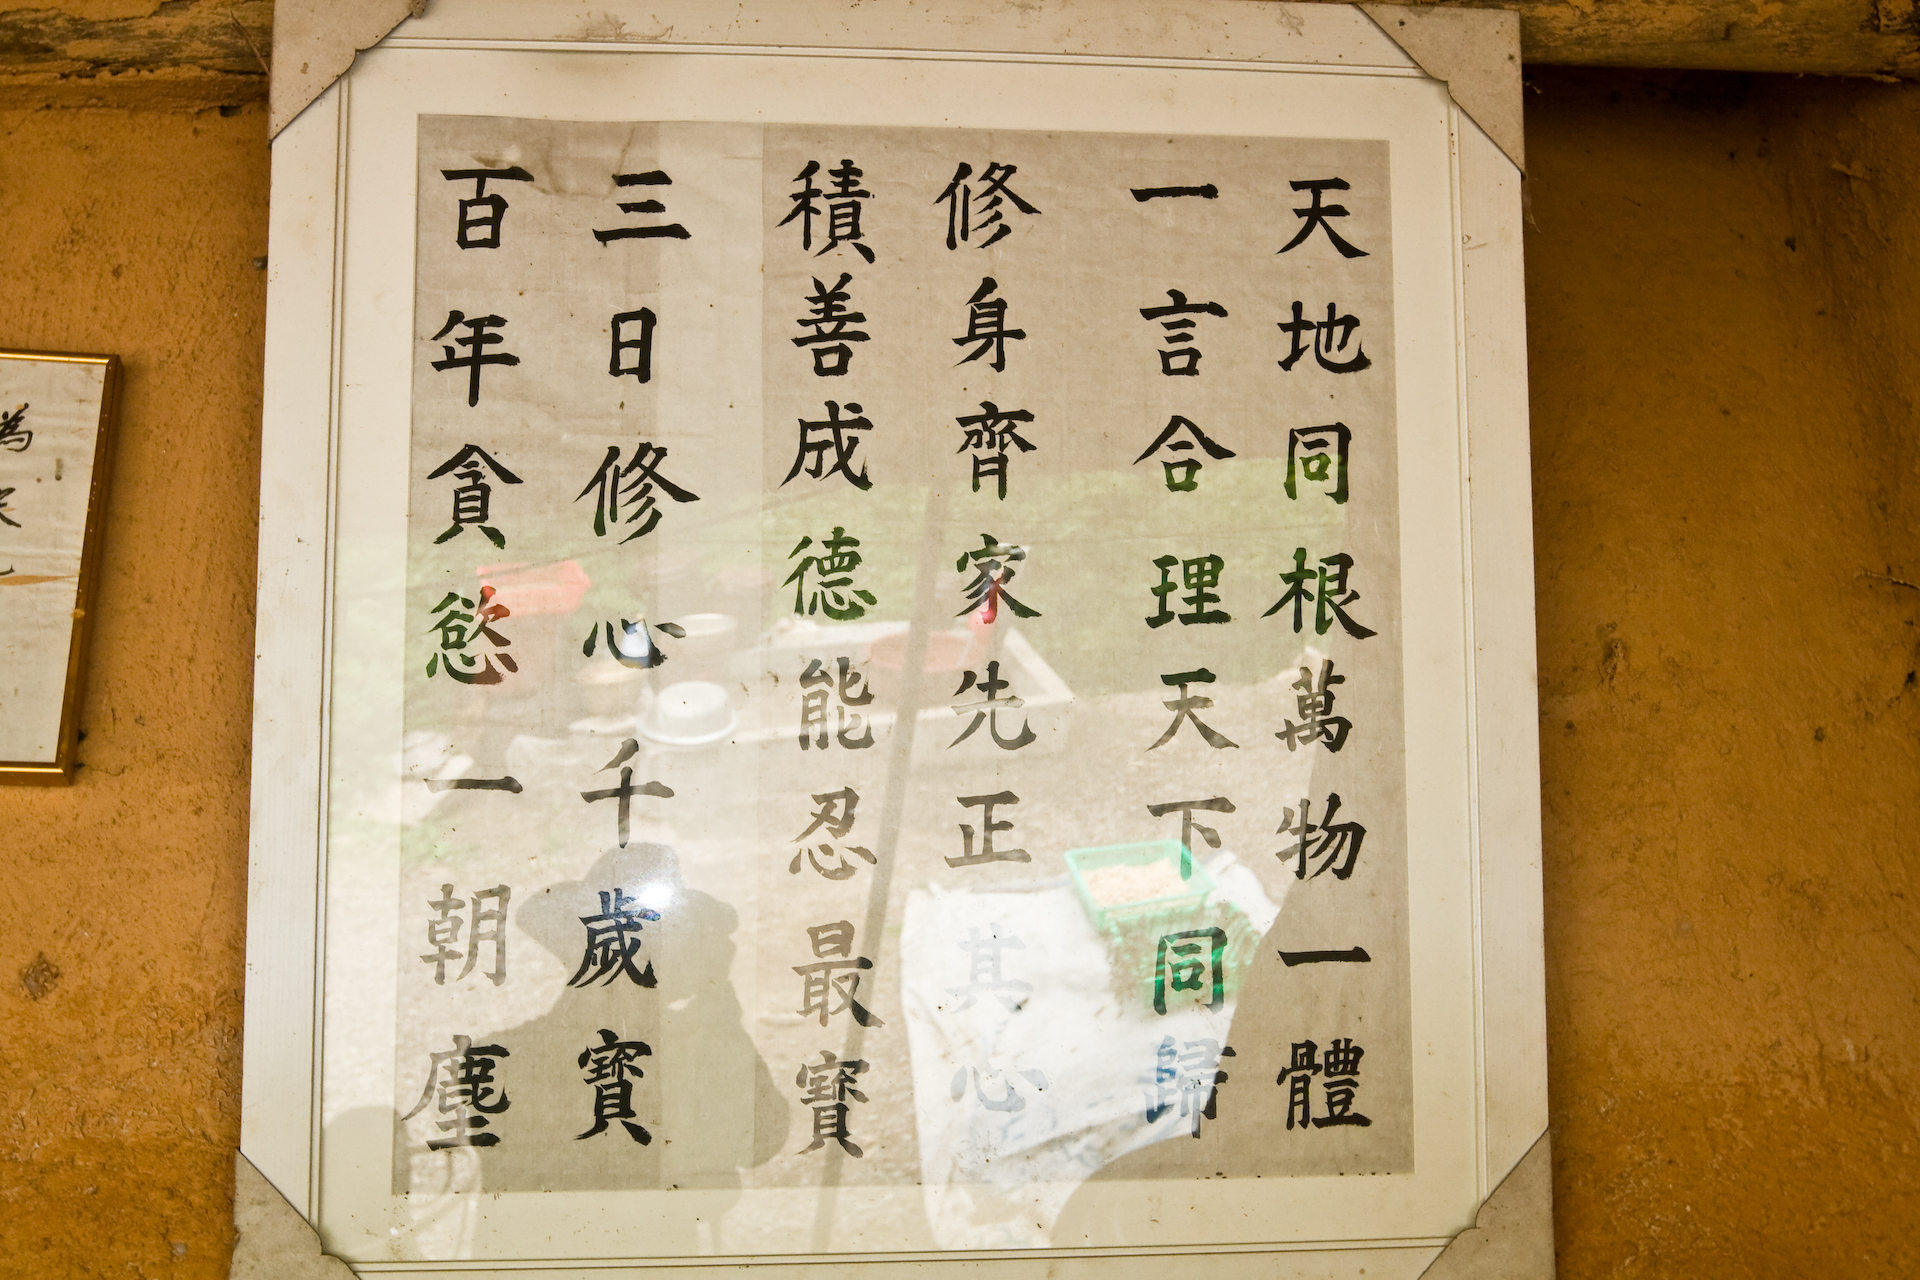 天地同根萬物一體
一言合理天下同歸
修身齊家先正其心
積善成德能忍最寶
三日修心千歲寶
百年貪慾一朝塵
為